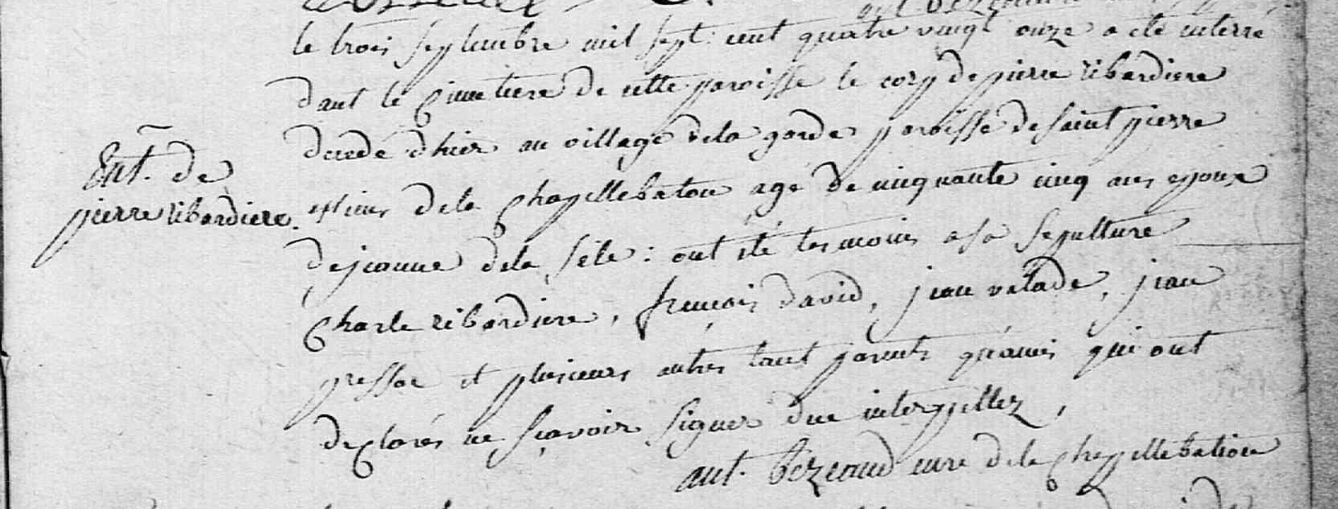 le trois septembre mil sept cent quatre vingt onze a eté enterré
dant le cimetiere de cette paroisse le corp de pierre ribardiere
decede d'hier au village de la garde paroisse de saint pierre
Ent. de
pierre ribardiere.
de la Chapellebaton agé de cinquante cinq ans epoux
de jeanne de la : ont eté tesmoins a sa sepulture
Charle ribardiere, francois david, jean valade, jean
pressac et plusieurs autres tant parents qu'amis qui ont
declarés ne sçavoir signer due interpellez,
ant. curé de la Chapellebaton